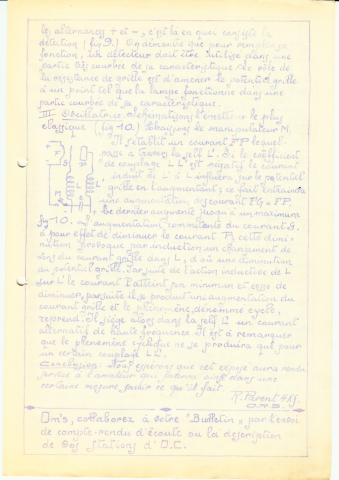 les alternances + et -, c'est là en quoi consiste la
détection (fig 9.) On démontre que pour remplir sa
fonction, un détecteur doit être utilisé dans une
partie des courbe de sa caractéristique. Le rôle de
la résistance de grille est d'amener le potentiel grille
à un point tel que la lampe fonctionne dans une
partie courbe de sa caractéristique.
III Oscillatrice. Schématisons l'émetteur le plus
classique (fig 10.) Abaissons le manipulateur M.
Il s'établit un courant FP lequel
passe à travers la self L. Si le coefficient
de couplage LL' est négatif le courant
induit de L' à L influera sur le potentiel
grille en l'augmentant; ce fait entraînera
une augmentation du courant FG = FP.
Ce dernier augmente jusqu'à un maximum
fig 10. L'augmentation constante du courant G.
a pour effet de diminuer le courant P; cette dimi-
nution provoque par induction un changement de
sens du courant grille dans L, d'où une diminution
du potentiel grille. Par suite de l'action inductive de L
sur L' le courant P atteint un minimum et cesse de
diminuer, par suite il se produit une augmentation du
courant grille et le phénomène, dénommé cycle,
reprend. Il siège alors dans la self L' un courant
alternatif de haute fréquence. Il est à remarquer
que le phénomène cyclique ne se produira que pour
un certain couplage LL'.
Conclusion. Nous espérons que cet exposé aura rendu
service à l'amateur qui saura ainsi dans une
certaine mesure, saisir ce qu'il fait.
R. Parent 4X5.
O.N.S.
Om's, collaborez à votre "Bulletin" par l'envoi
de compte-rendu d'écoute ou la description
de vos stations d'O.C.